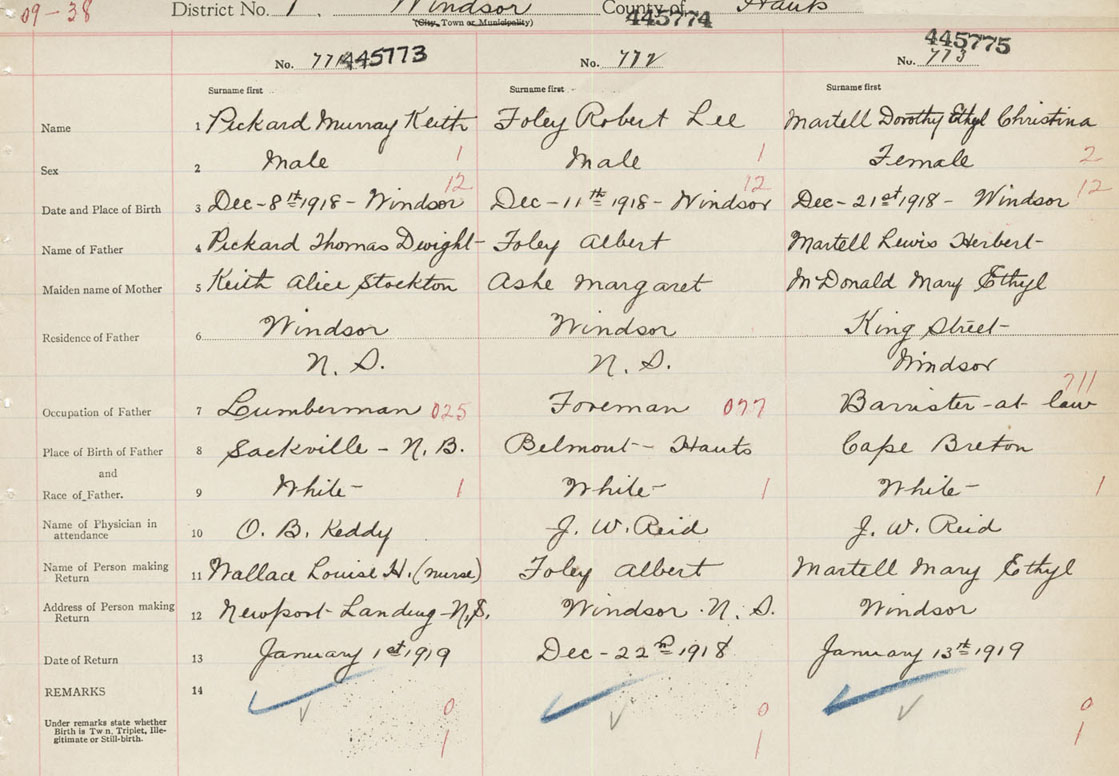 09-38
District No. 1. Windsor County of Hants
(City, Town or Municipality)
445774
No. 771 445773 No. 772 No. 773 445775
Surname first Surname first Surname first
Name 1 Pickard Murray Keith Foley Robert Lee Martell Dorothy Ethyl Christina
Sex 2 Male 1 Male 1 Female 2
12 12 12
Date and Place of Birth 3 Dec-8th 1918- Windsor Dec-11th 1918- Windsor Dec-21st 1918- Windsor
Name of Father 4 Pickard Thomas Dwight- Foley Albert Martell Lewis Herbert-
Maiden name of Mother 5 Keith Alice Stockton Ashe Margaret McDonald Mary Ethyl
Residence of Father 6 Windsor Windsor King Street-
N. S. N. S. Windsor
711
Occupation of Father 7 Lumberman 025 Foreman 077 Barrister-at law
Place of Birth of Father 8 Sackville - N. B. Belmont- Hants Cape Breton
and
Race of Father. 9 White- 1 White- 1 White- 1
Name of Physician in
attendance 10 O. B. Keddy J. W. Reid J. W. Reid
Name of Person making
Return 11 Wallace Louise H. (nurse) Foley Albert Martell Mary Ethyl
Address of Person making
Return 12 Newport Landing-N.S. Windsor. N. S. Windsor
Date of Return 13 January 1st 1919 Dec-22nd 1918 January 13th 1919
REMARKS 14
0 0 0
Under remarks state whether
Birth is Twin, Triplet, Ille-
gitimate or Still-birth.
1 1 1